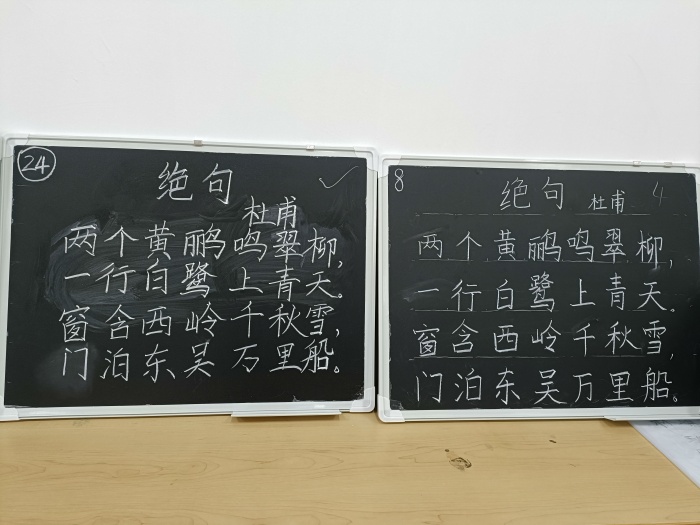 24
绝句
杜甫
两个黄鹂鸣翠柳,
一行白鹭上青天。
窗含西岭千秋雪,
门泊东吴万里船。
8
绝句 杜甫 4
两个黄鹂鸣翠柳,
一行白鹭上青天。
窗含西岭千秋雪,
门泊东吴万里船。